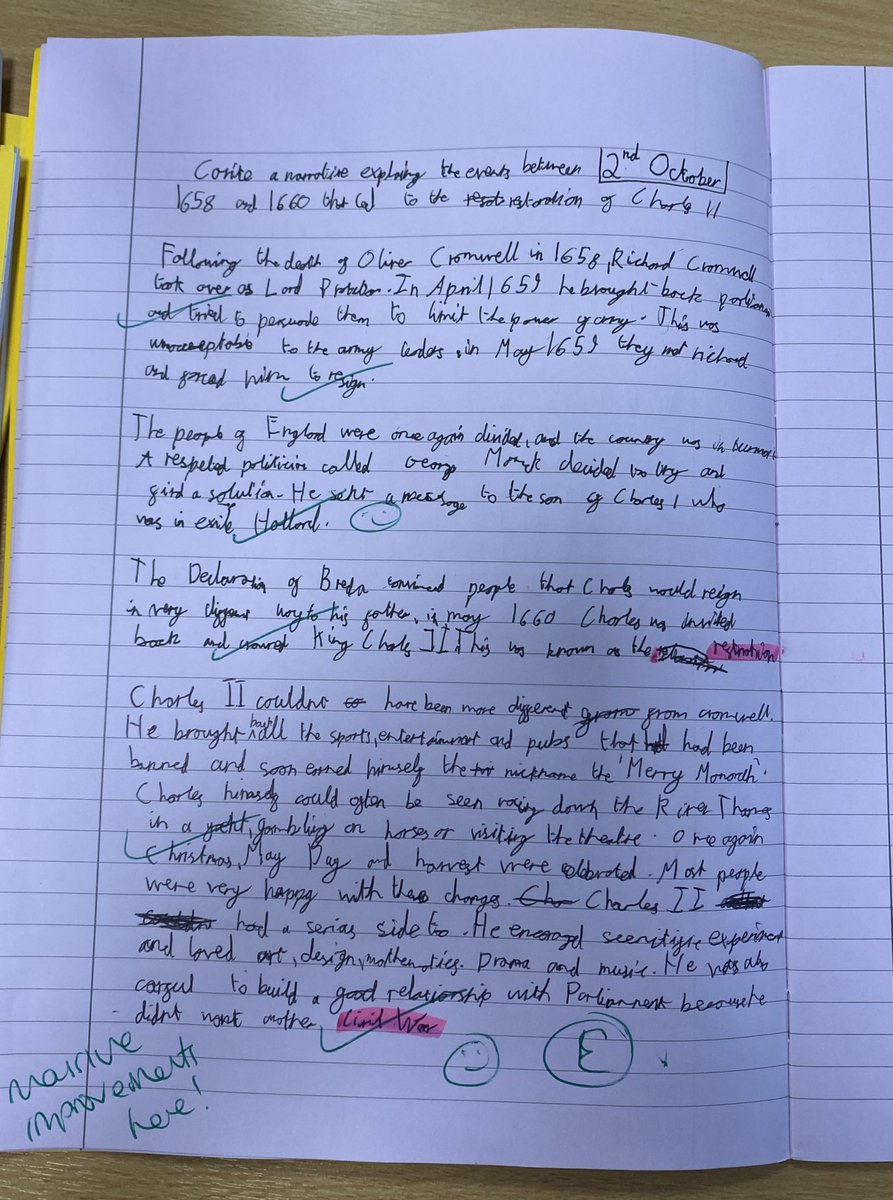 Corite a narrative explaing the events between 2nd Octrober
1658 and 1660 that led to the restoration of Charles II
Following the death of Oliver Cromwell in 1658, Richard Cromwell
took over as Lord Protector. In April 1659 he brought back
and tried to persuade them to limit the power of army. This was
to the army leaders, in May 1659 they met richard
and forced him to resign.
The people of England were once again divided, and the country was in
A respected politician called George Monck decided to try and
find a solution. He sent a message to the son of Charles I who
was in exile, Holland.
The Declaration of Breda convinced people that Charles would reign
in very his father, in may 1660 Charles was invited
back and King Charles II This was known as the restoration.
Charles II couldnt have been more different from cromwell.
He brought back all the sports, entertainment and pubs that had been
banned and soon earned himself the nickname the 'Merry Monarch'.
Charles himself could often be seen racing down the River Thames
in a yacht, gambling on horses or visiting the theatre. Once again
Christmas, May Day and harvest were celebrated. Most people
were very happy with these changes. Charles II
had a serias side too. He experiment
and loved art, design, mathematics. Drama and music. He was also
careful to build a good relationship with Parliament because he
didnt want another civil War
massive
improvements
here!
E